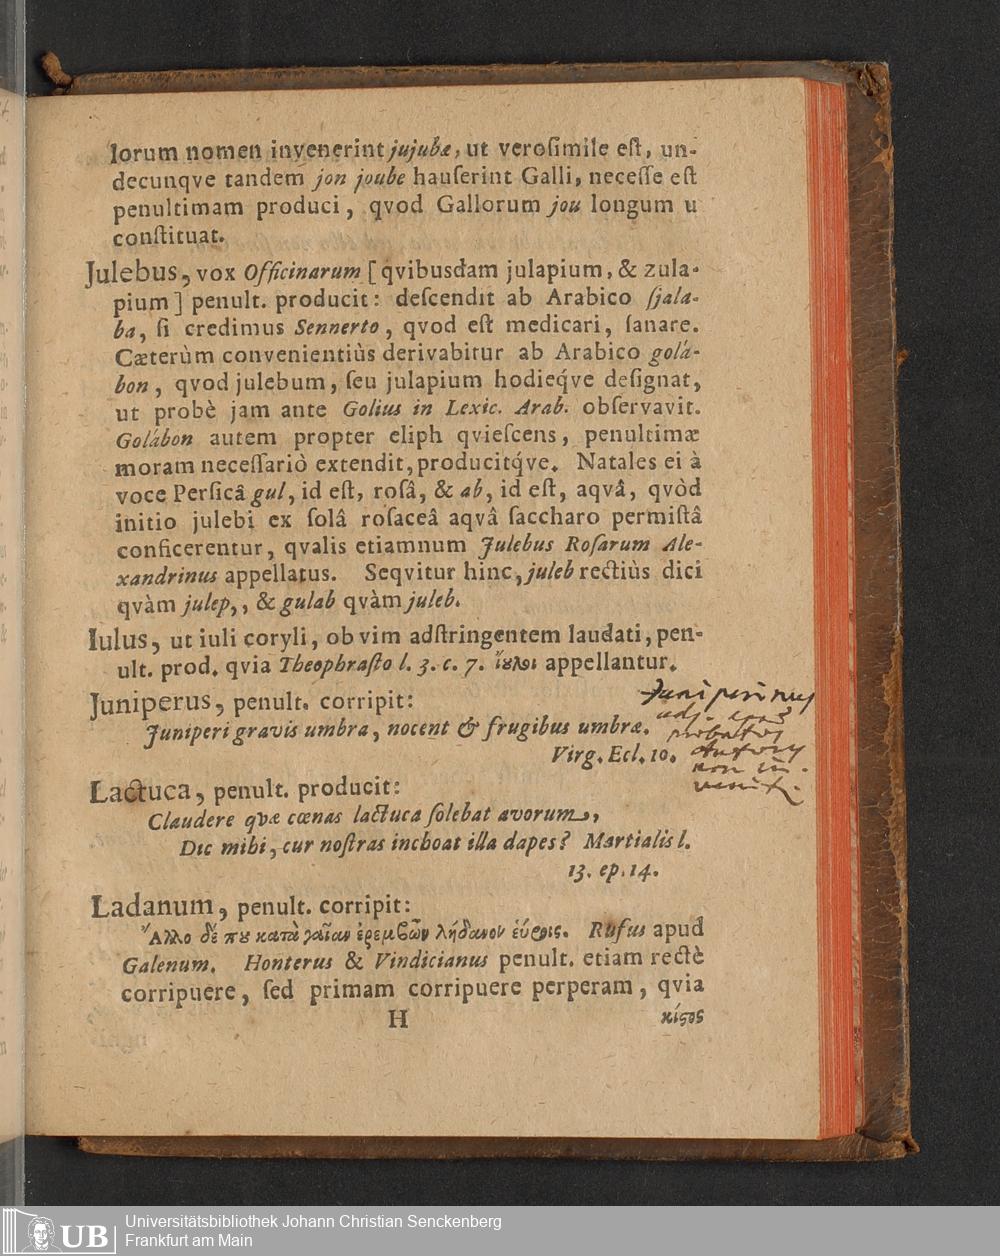 lorum nomen invenerint jujubæ, ut verosimile est, un-
decunqve tandem jon joube hauserint Galli, necesse est
penultimam produci, qvod Gallorum jou longum u
constituat.
Julebus, vox Officinarum [qvibusdam julapium, & zula-
pium] penult. producit: descendit ab Arabico sjala-
ba, si credimus Sennerto, qvod est medicari, sanare.
Cæterùm convenientiùs derivabitur ab Arabico golá-
bon, qvod julebum, seu julapium hodieq́ve designat,
ut probè jam ante Golius in Lexic. Arab. observavit.
Golábon autem propter eliph qviescens, penultimæ
moram necessariò extendit, producitq́ve. Natales ei à
voce Persicâ gul, id est, rosâ, & ab, id est, aqvâ, qvòd
initio julebi ex solâ rosaceâ aqvâ saccharo permistâ
conficerentur, qvalis etiamnum Julebus Rosarum Ale-
xandrinus appellatus. Seqvitur hinc, juleb rectiùs dici
qvàm julep, , & gulab qvàm juleb.
Iulus, ut iuli coryli, ob vim adstringentem laudati, pen-
ult. prod. qvia Theophrasto l. 3. c. 7. ἴουλοι appellantur.
Juniperus, penult. corripit:
Juniperi gravis umbra, nocent & frugibus umbræ.
Virg. Ecl. 10.
Juniperinus
adj. apud
probatos
Autores
non in-
venit.
Lactuca, penult. producit:
Claudere qvæ cœnas lactuca solebat avorum,
Dic mihi, cur nostras inchoat illa dapes? Martialis l.
13. ep. 14.
Ladanum, penult. corripit:
Ἄλλο δέ που κατὰ γαῖαν ἐρεμβῶν λήδανον εὕροις. Rufus apud
Galenum. Honterus & Vindicianus penult. etiam rectè
corripuere, sed primam corripuere perperam, qvia
H κίστος
UB Universitätsbibliothek Johann Christian Senckenberg
Frankfurt am Main